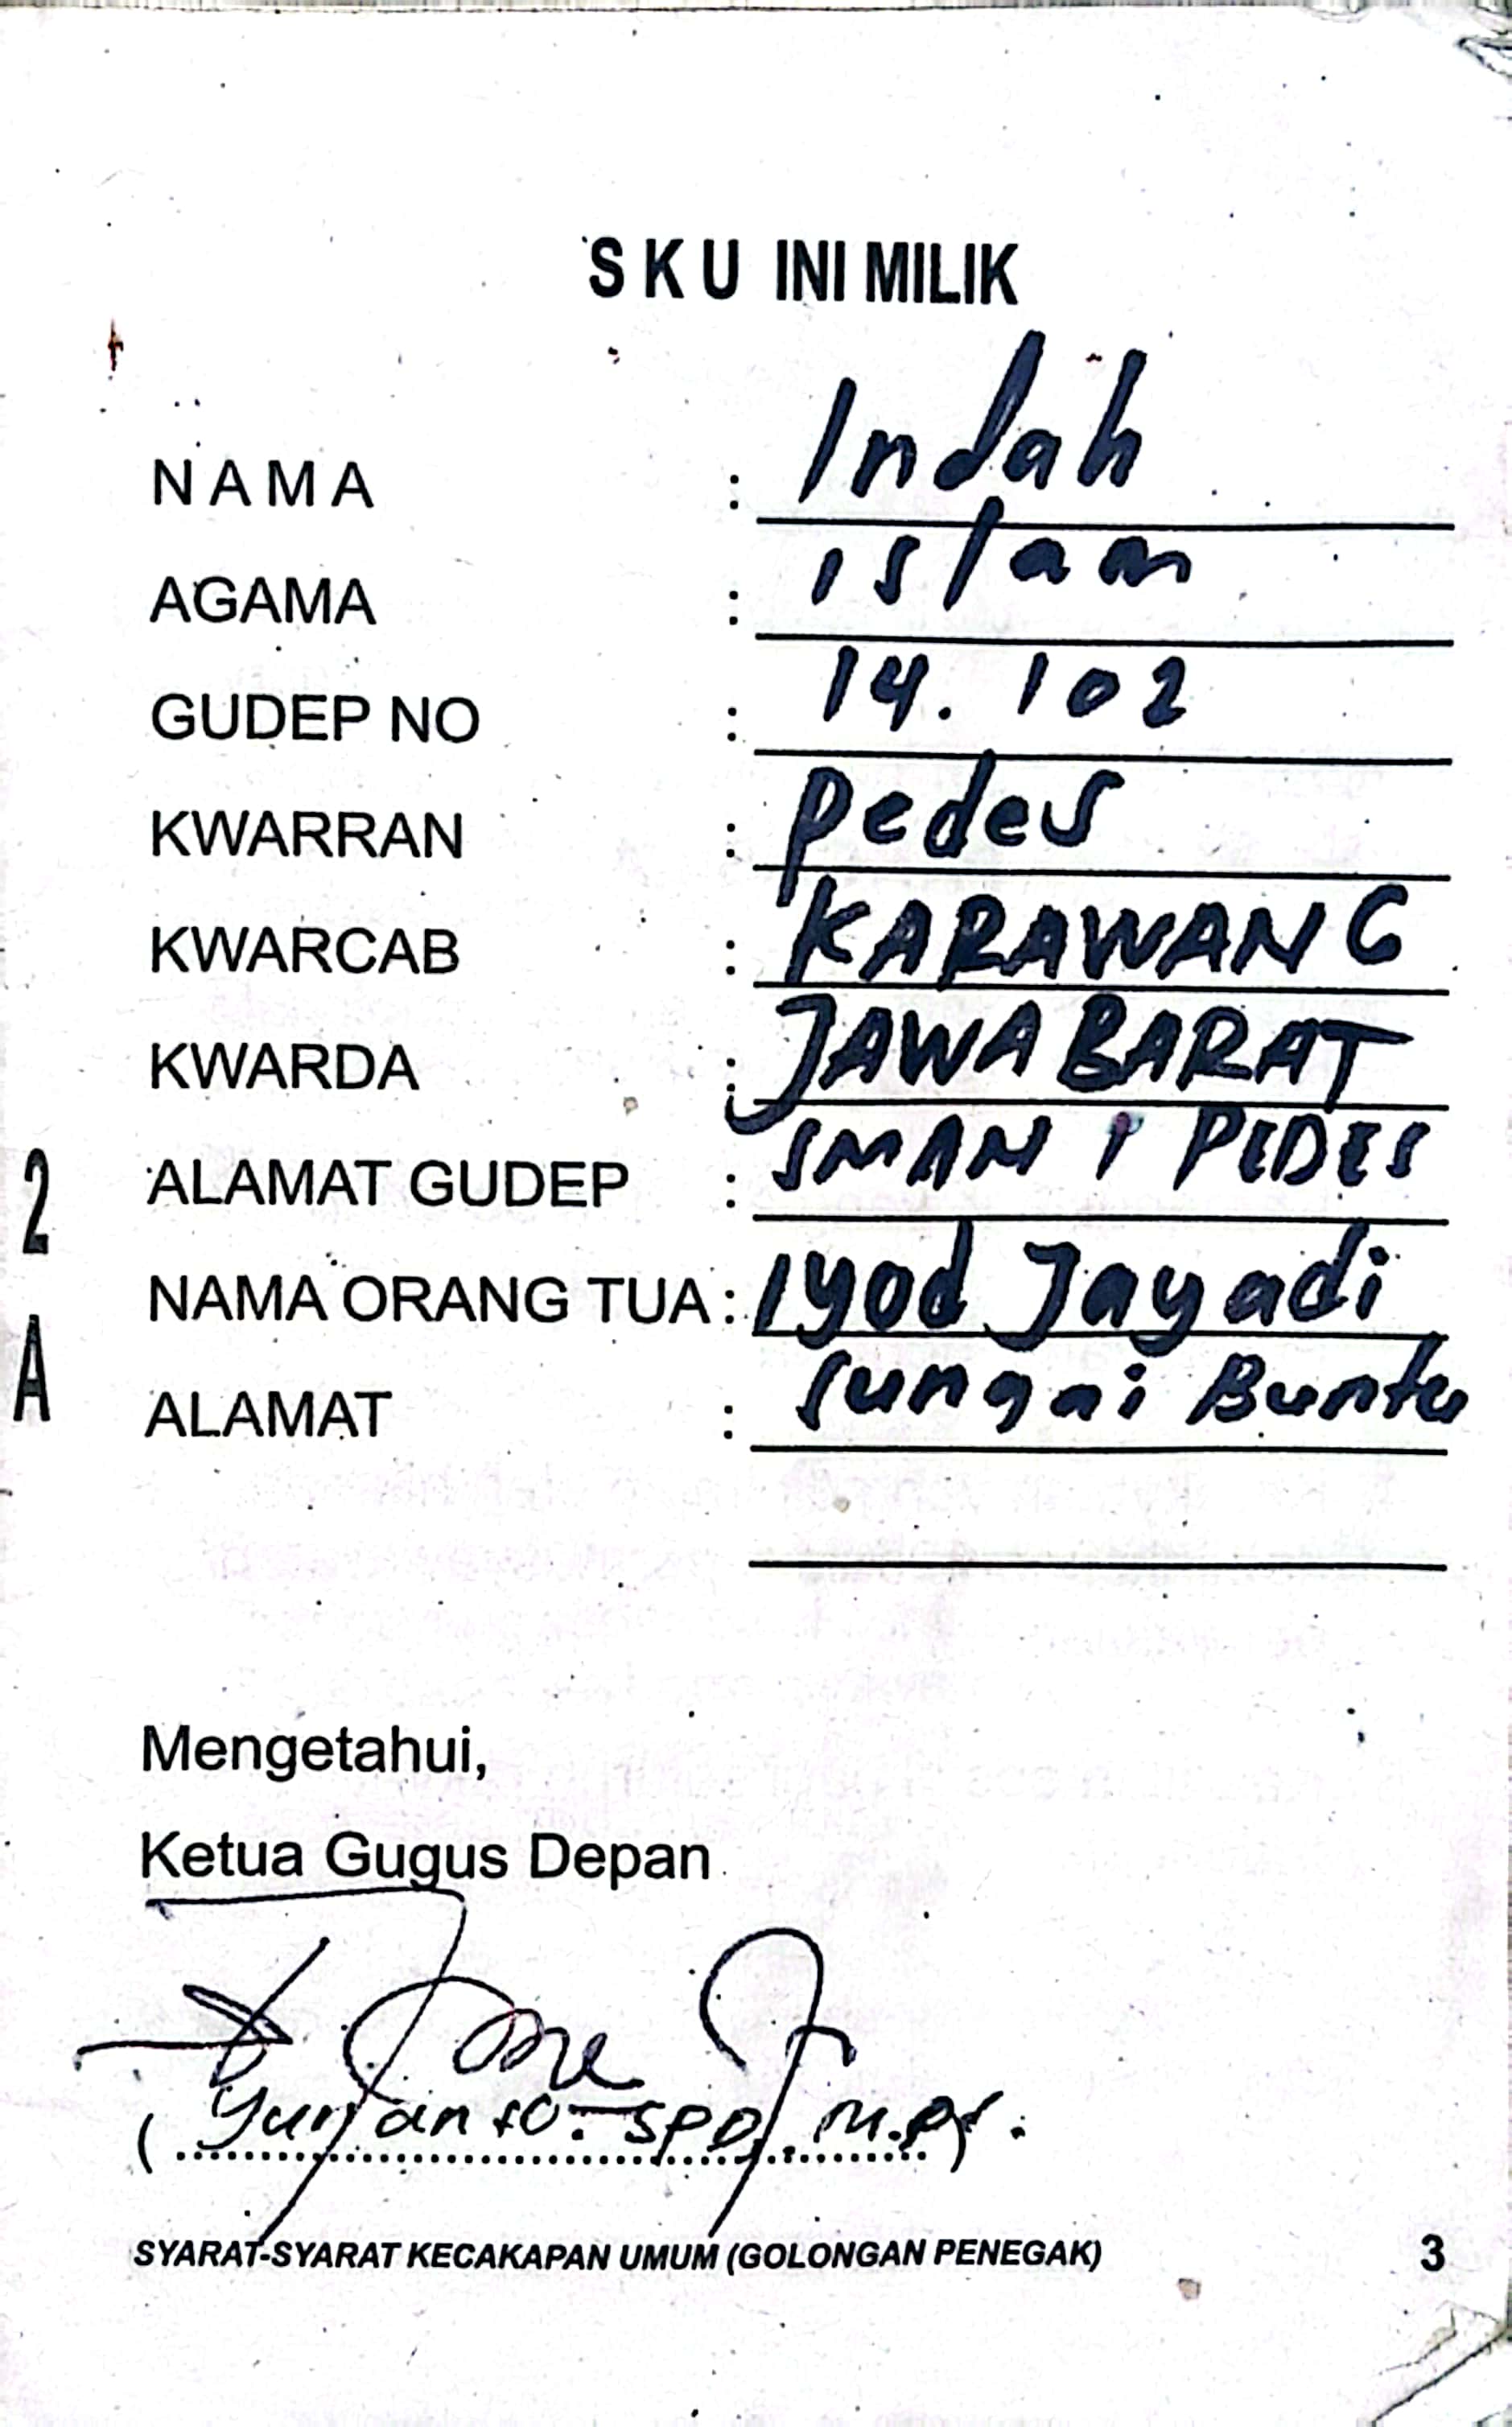 S K U INI MILIK
N A M A : Indah
AGAMA : islam
GUDEP NO : 14.102
KWARRAN : pedes
KWARCAB : KARAWANG
KWARDA : JAWA BARAT
ALAMAT GUDEP : SMAN 1 PEDES
NAMA ORANG TUA : Iyod Jayadi
ALAMAT : sungai Buntu
2
A
Mengetahui,
Ketua Gugus Depan
( SPD, )
SYARAT-SYARAT KECAKAPAN UMUM (GOLONGAN PENEGAK) 3